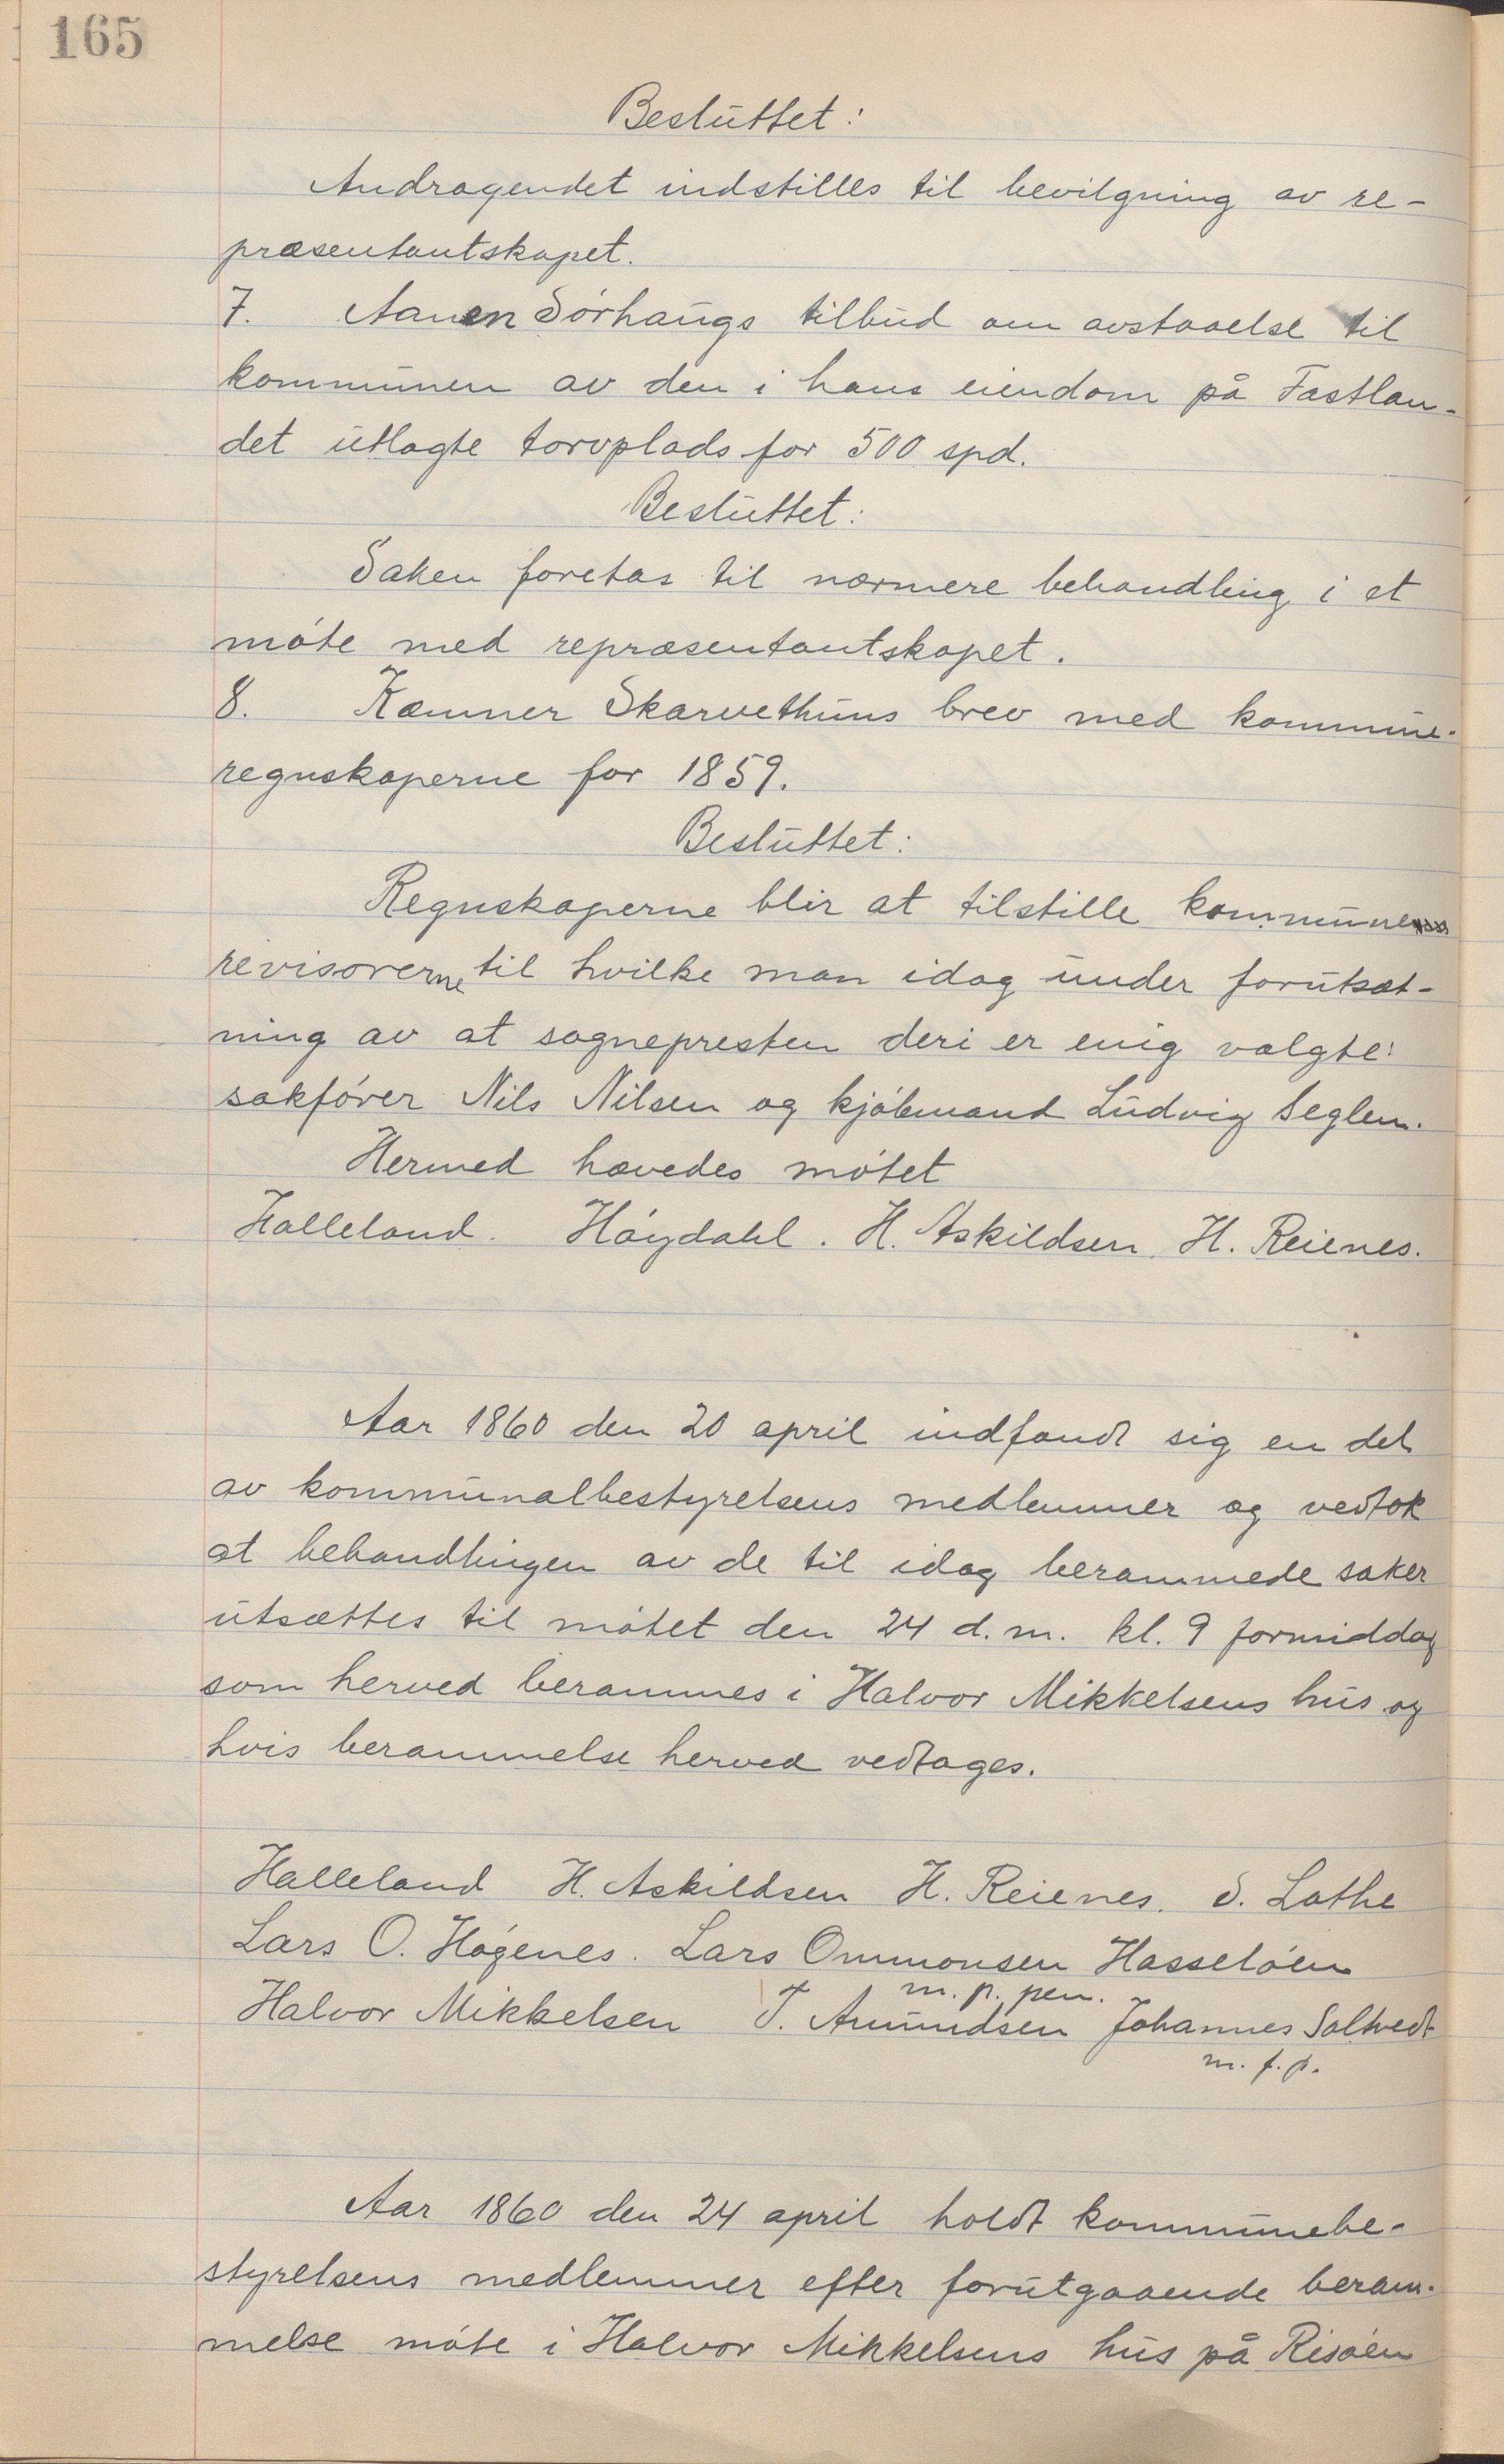 165
Besluttet:
Andragendet indstilles til bevilgning av re-
præsentantskapet.
7. Aanen Sørhaugs tilbud om avstaaelse til
kommunen av den i hans eiendom på Fastlan-
det utlagte torvplads for 500 spd.
Besluttet:
Saken foretas til nærmere behandling i et
møte med repræsentantskapet.
8. Kæmner Skarvethuns brev med kommune-
regnskaperne for 1859.
Besluttet:
Regnskaperne blir at tilstille kommune
revisorerne til hvilke man idag under forutsæt-
ning av at sognepresten deri er enig valgte:
sakfører Nils Nilsen og kjøbmand Ludvig Seglem.
Hermed hævedes møtet
Halleland. Høydahl. H. Askildsen. H. Reienes.
Aar 1860 den 20 april indfandt sig en del
av kommunalbestyrelsens medlemmer og vedtok
at behandlingen av de til idag berammede saker
utsættes til møtet den 24 d.m. kl. 9 formiddag
som herved berammes i Halvor Mikkelsens hus og
hvis berammelse herved vedtages.
Halleland H. Askildsen H. Reienes. S. Lothe
Lars O. Høgenes. Lars Ommonsen Hasseløen
m. p. pen.
Halvor Mikkelsen T. Amundsen Johannes Saltvedt
m. f. p.
Aar 1860 den 24 april holdt kommunebe-
styrelsens medlemmer efter forutgaaende beram-
melse møte i Halvor Mikkelsens hus på Risøen